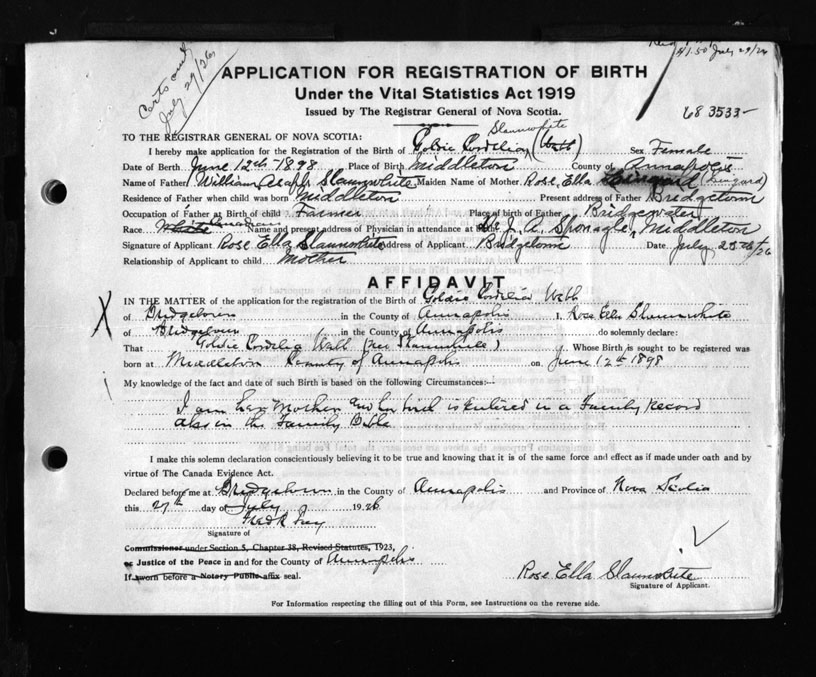 Certs out
July 29/26
$1.50 July 29/26
APPLICATION FOR REGISTRATION OF BIRTH
Under the Vital Statistics Act 1919
Issued by The Registrar General of Nova Scotia.
68 3533-
TO THE REGISTRAR GENERAL OF NOVA SCOTIA:
Slaunwhite
I hereby make application for the Registration of the Birth of Goldie Cordelia (Webb) Sex Female
Date of Birth June 12th-1898 Place of Birth Middleton County of Annapolis
Name of Father William Slaunwhite Maiden Name of Mother Rose Ella
Residence of Father when child was born Middleton Present address of Father Bridgetown
Occupation of Father at Birth of child Farmer Place of birth of Father Bridgewater
Race. White Canadian Name and present address of Physician in attendance at birth J. A. Sponagle, Middleton
Signature of Applicant Rose Ella Slaunwhite Address of Applicant Bridgetown Date July 28th/26
Relationship of Applicant to child Mother
AFFIDAVIT
X
IN THE MATTER of the application for the registration of the Birth of Goldie Cordelia Webb
of Bridgetown in the County of Annapolis I, Rose Ella Slaunwhite
of Bridgetown in the County of Annapolis do solemnly declare:
That Goldie Cordelia Webb (nee Slaunwhite) Whose Birth is sought to be registered was
born at Middleton County of Annapolis on June 12th 1898
My knowledge of the fact and date of such Birth is based on the following Circumstances:—
I am her Mother and her birth is entered in a Family Record
also in the Family Bible
I make this solemn declaration conscientiously believing it to be true and knowing that it is of the same force and effect as if made under oath and by
virtue of The Canada Evidence Act.
Declared before me at Bridgetown in the County of Annapolis and Province of Nova Scotia
this 27th day of July 1926
Signature of
Commissioner under Section 5, Chapter 38, Revised Statutes, 1923,
or Justice of the Peace in and for the County of Annapolis
If sworn before a Notary Public affix seal.
Rose Ella Slaunwhite
Signature of Applicant.
For Information respecting the filling out of this Form, see Instructions on the reverse side.